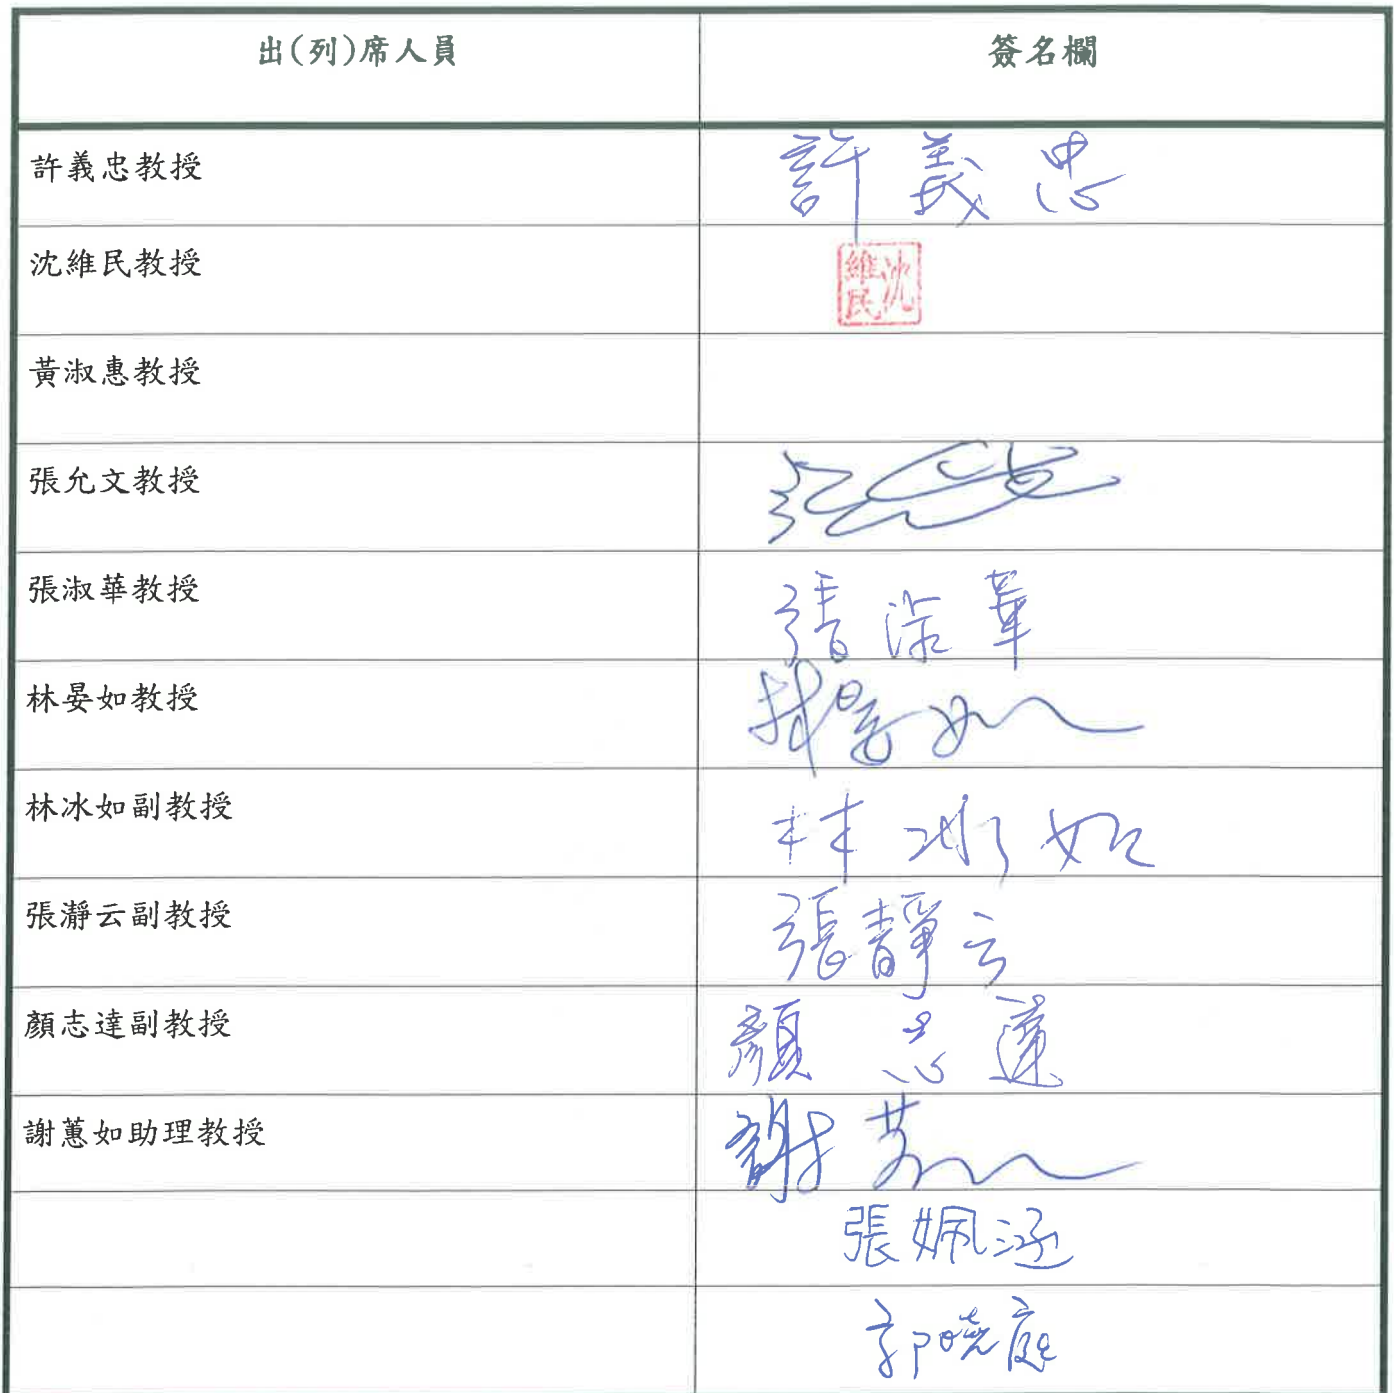 出(列)席人員 簽名欄
許義忠教授 許義忠
沈維民教授 沈維民
黃淑惠教授
張允文教授
張淑華教授 張淑華
林晏如教授 林晏如
林冰如副教授 林冰如
張瀞云副教授 張靜云
顏志達副教授 顏志達
謝蕙如助理教授 謝
張姵涵
郭曉庭